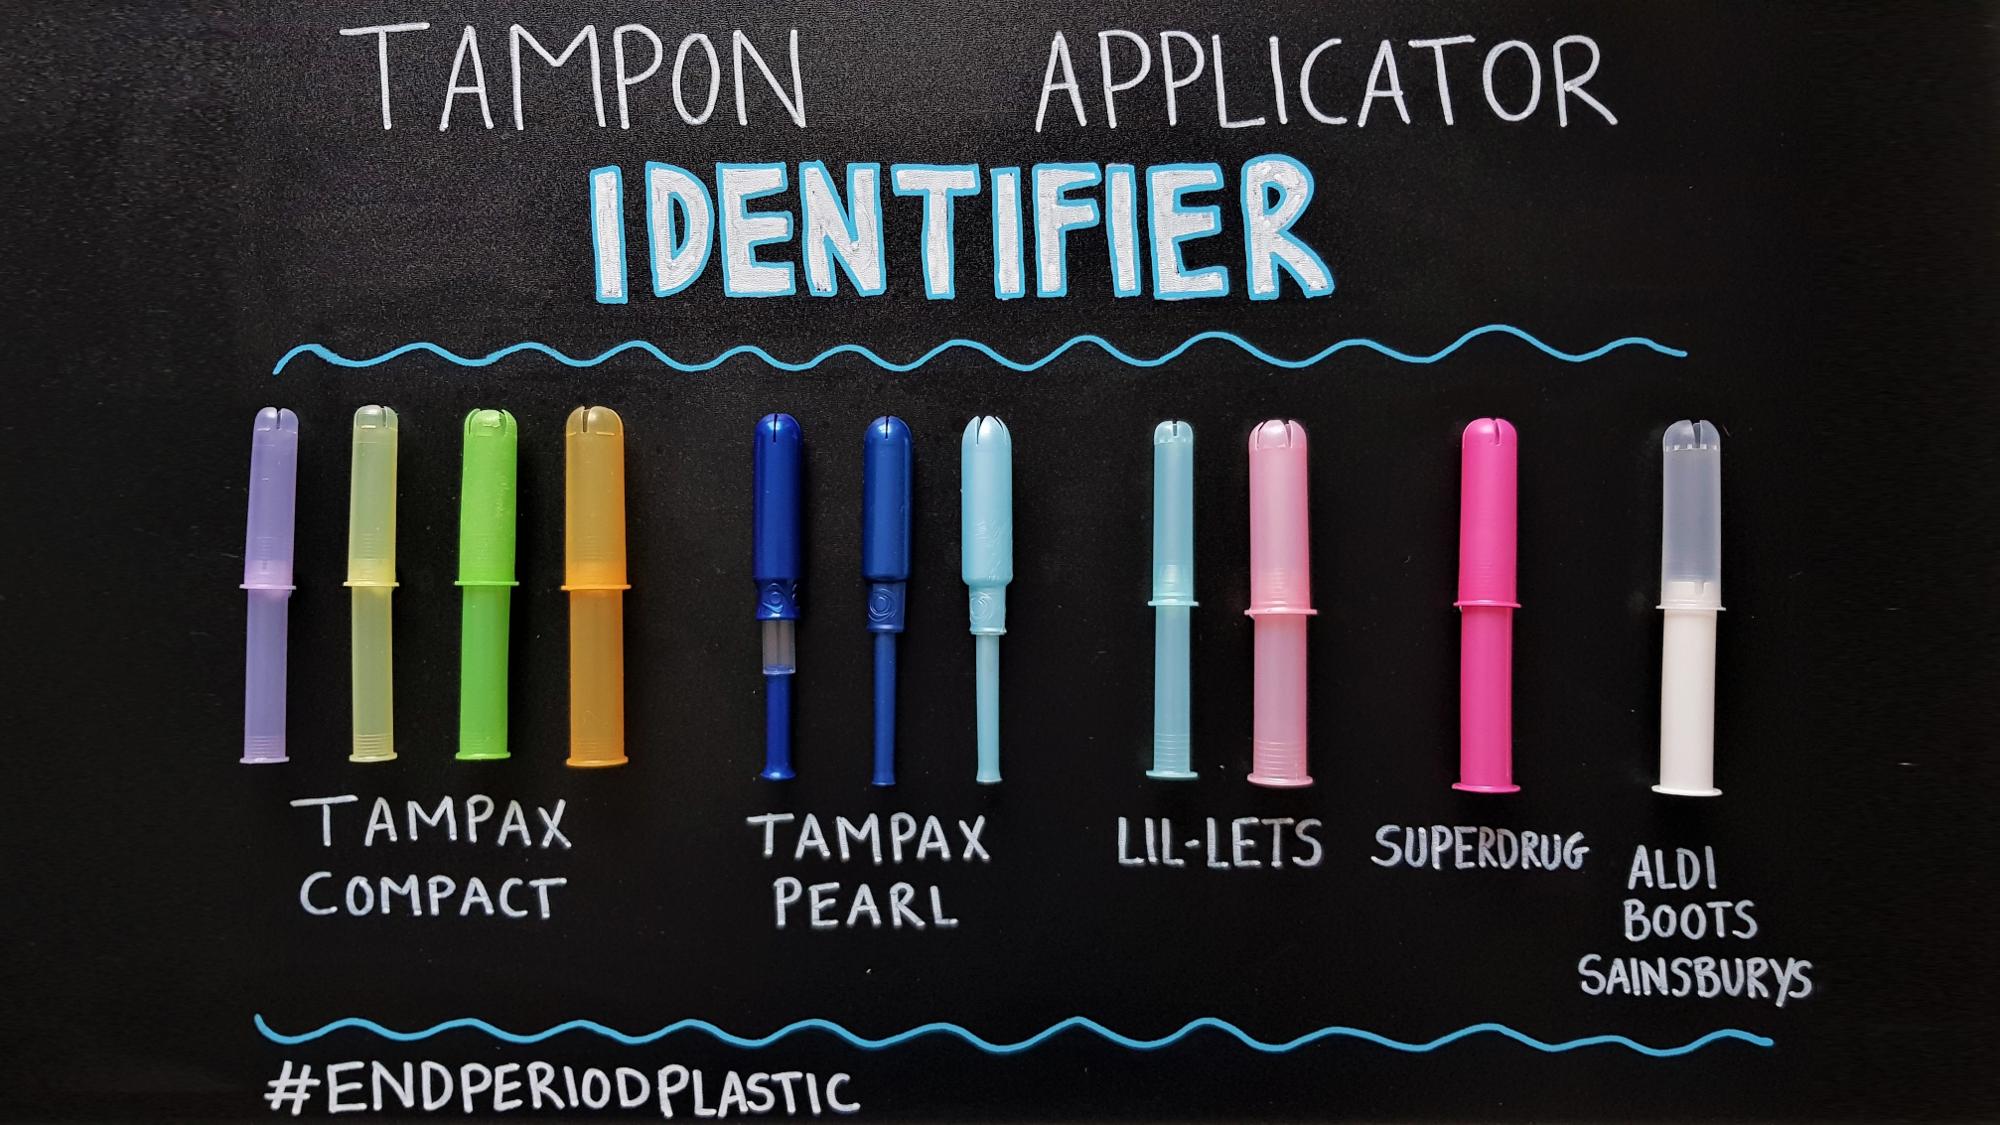 TAMPON APPLICATOR
IDENTIFIER
TAMPAX
COMPACT
TAMPAX
PEARL
LIL-LETS
SUPERDRUG
ALDI
BOOTS
SAINSBURYS
#ENDPERIODPLASTIC